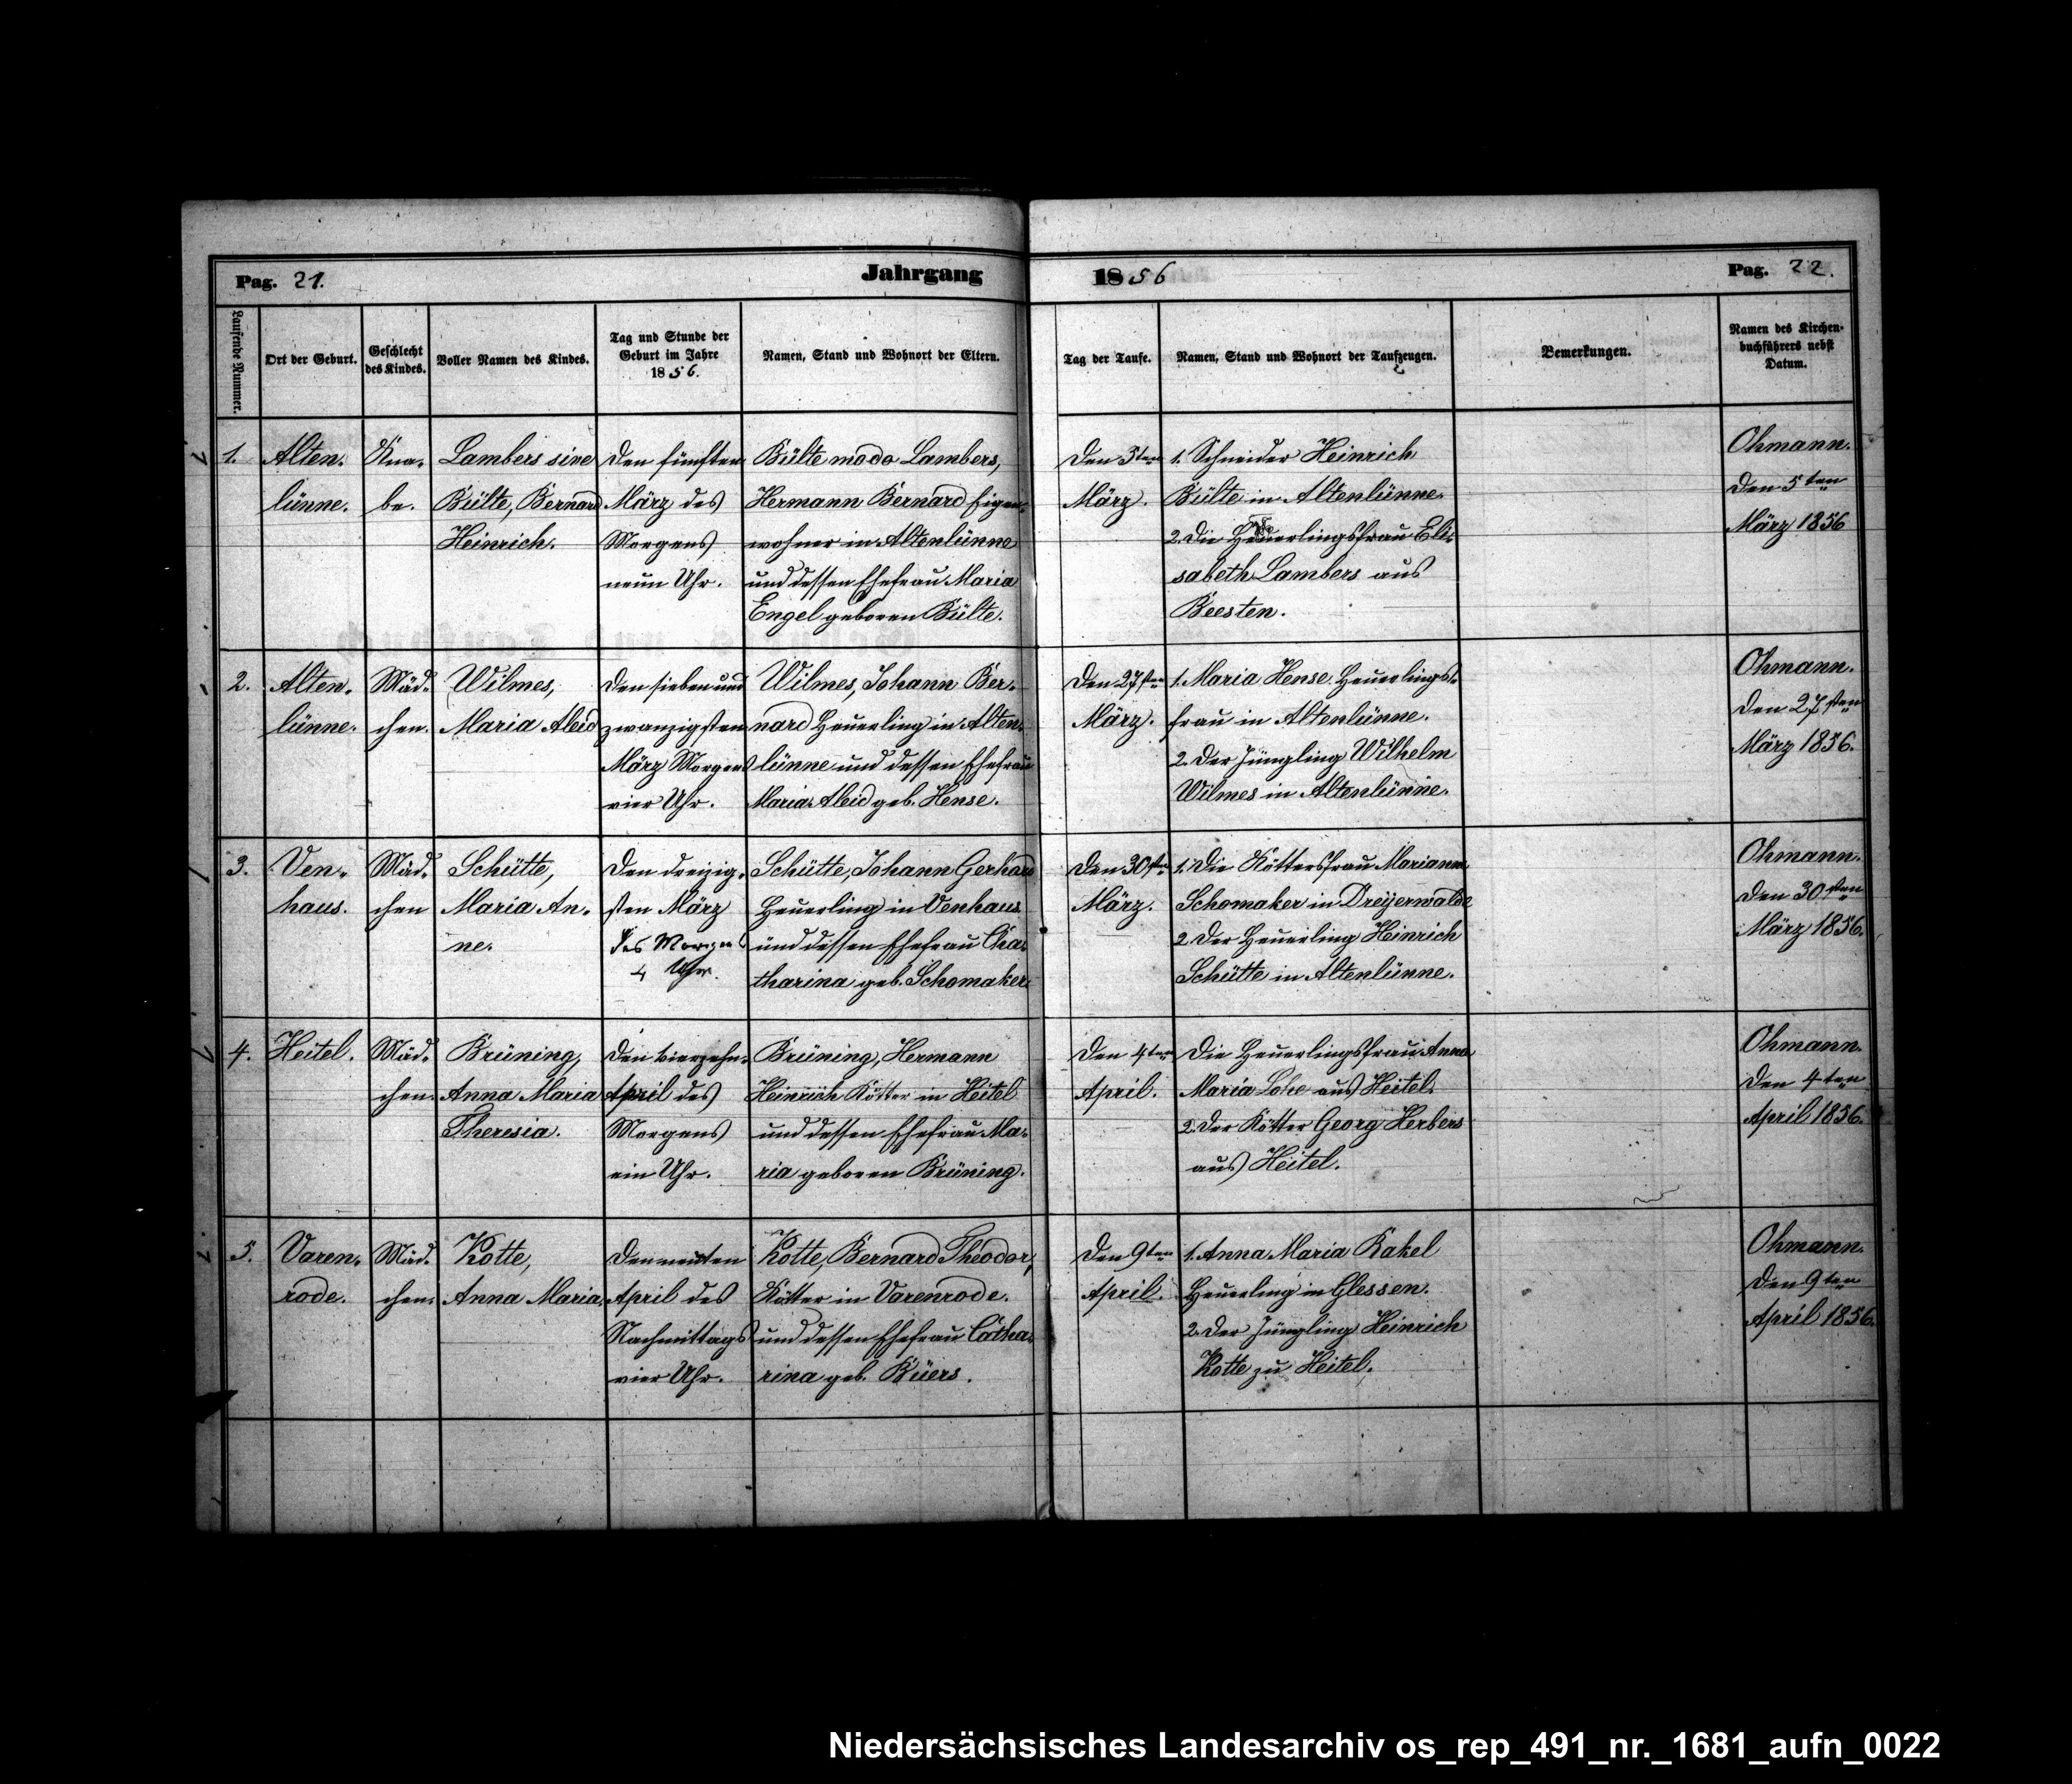 Pag. 21.
Jahrgang
1856
Pag. 22.
Laufende Nummer.
Ort der Geburt.
Geschlecht
des Kindes.
Voller Namen des Kindes.
Tag und Stunde der
Geburt im Jahre
1856.
Namen, Stand und Wohnort der Eltern.
Tag der Taufe.
Namen, Stand und Wohnort der Taufzeugen.
Bemerkungen.
Namen des Kirchen-
buchführers nebst
Datum.
1.
Alten-
lünne.
Kna-
be.
Lambers sive
Bülte, Bernard
Heinrich.
Den fünften
März des
Morgens
neun Uhr.
Bülte modo Lambers,
Hermann Bernard Eigen-
wohner in Altenlünne
und dessen Ehefrau Maria
Engel geboren Bülte.
Den 5ten
März.
1. Schneider Heinrich
Bülte in Altenlünne.
2. Die Heuerlingsfrau Eli-
sabeth Lambers aus
Beesten.
Ohmann.
Den 5ten
März 1856
2.
Alten-
lünne.
Mäd-
chen.
Wilmes,
Maria Aleid
Den sieben und
zwanzigsten
März Morgens
vier Uhr.
Wilmes, Johann Ber-
nard Heuerling in Alten-
lünne und dessen Ehefrau
Maria Aleid geb. Hense.
Den 27sten
März.
1. Maria Hense Heuerlings-
frau in Altenlünne.
2. Der Jüngling Wilhelm
Wilmes in Altenlünne.
Ohmann.
Den 27sten
März 1856.
3.
Ven-
haus.
Mäd-
chen
Schütte,
Maria An-
ne.
Den dreizig-
sten März
des Morgens
4 Uhr.
Schütte, Johann Gerhard
Heuerling in Venhaus
und dessen Ehefrau Cha-
tharina geb. Schomaker.
Den 30sten
März.
1. Die Köttersfrau Marianna
Schomaker in Dreyerwalde
2. Der Heuerling Heinrich
Schütte in Altenlünne.
Ohmann.
Den 30sten
März 1856.
4.
Heitel.
Mäd-
chen.
Brüning,
Anna Maria
Theresia.
Den vierzehn-
April des
Morgens
ein Uhr.
Brüning, Hermann
Heinrich Kötter in Heitel
und dessen Ehefrau Ma-
ria geboren Brüning.
Den 4ten
April.
Die Heuerlingsfrau Anna
Maria Lohe aus Heitel.
2. Der Kötter Georg Herbers
aus Heitel.
Ohmann.
Den 4ten
April 1856.
5.
Varen-
rode.
Mäd-
chen.
Kotte,
Anna Maria.
Den neunten
April des
Nachmittags
vier Uhr.
Kotte, Bernard Theodor,
Kötter in Varenrode.
und dessen Ehefrau Catha-
rina geb. Büers.
Den 9ten
April.
1. Anna Maria Kakel
Heuerling in Glessen.
2. Der Jüngling Heinrich
Kotte zu Heitel.
Ohmann.
Den 9ten
April 1856.
Niedersächsisches Landesarchiv os_rep_491_nr._1681_aufn_0022